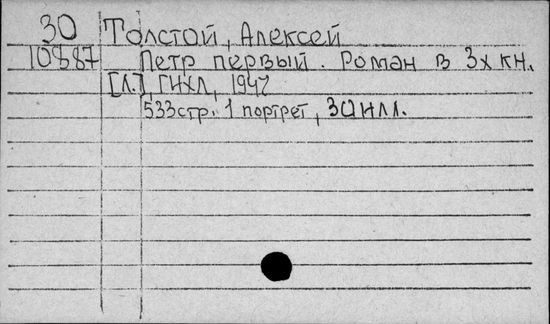 30 Толстой, Алексей
10887 Петр первый. Роман в 3х кн.
[Л.], ГИХЛ, 1947
533стр. 1 портрет, 30илл.